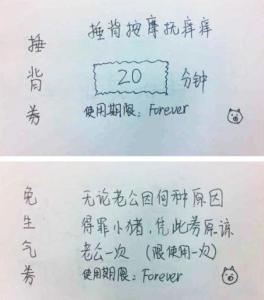 捶背券
捶背按摩抚痒痒
20 分钟
使用期限：Forever
免生气券
无论老公因何种原因
得罪小猪，凭此券原谅
老公一次（限使用一次）
使用期限：Forever